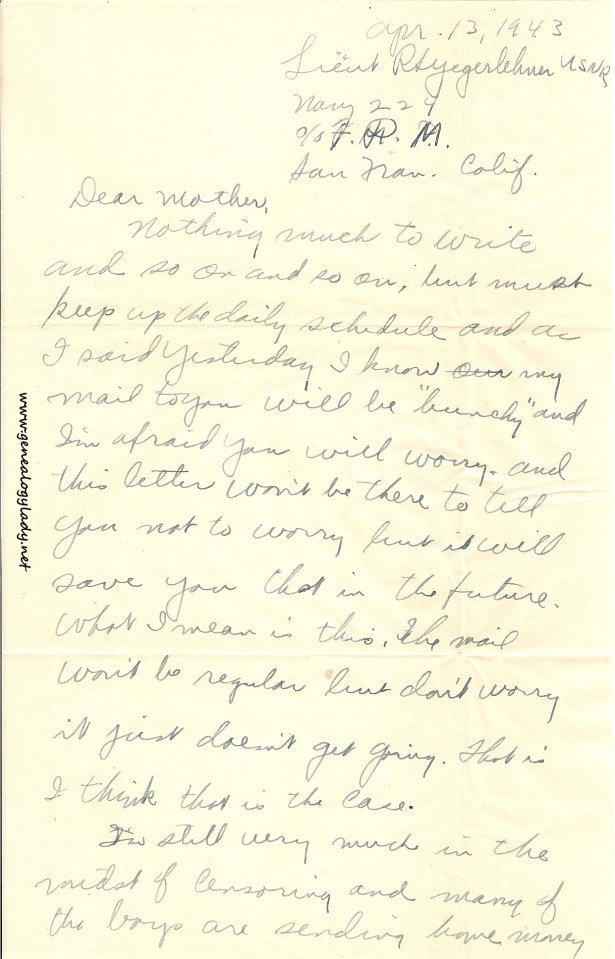 Apr. 13, 1943
Lieut R Yegerlehner USNR
Navy 229
c/o F. P. M.
San Fran. Calif.
Dear Mother,
Nothing much to write
and so on and so on, but must
keep up the daily schedule and as
I said yesterday I know our my
mail to you will be "bunchy" and
I'm afraid you will worry. and
this letter won't be there to tell
you not to worry but it will
save you that in the future.
What I mean is this. The mail
won't be regular but don't worry
it just doesn't get going. That is
I think that is the case.
I'm still very much in the
midst of censoring and many of
the boys are sending home money
www.genealogylady.net